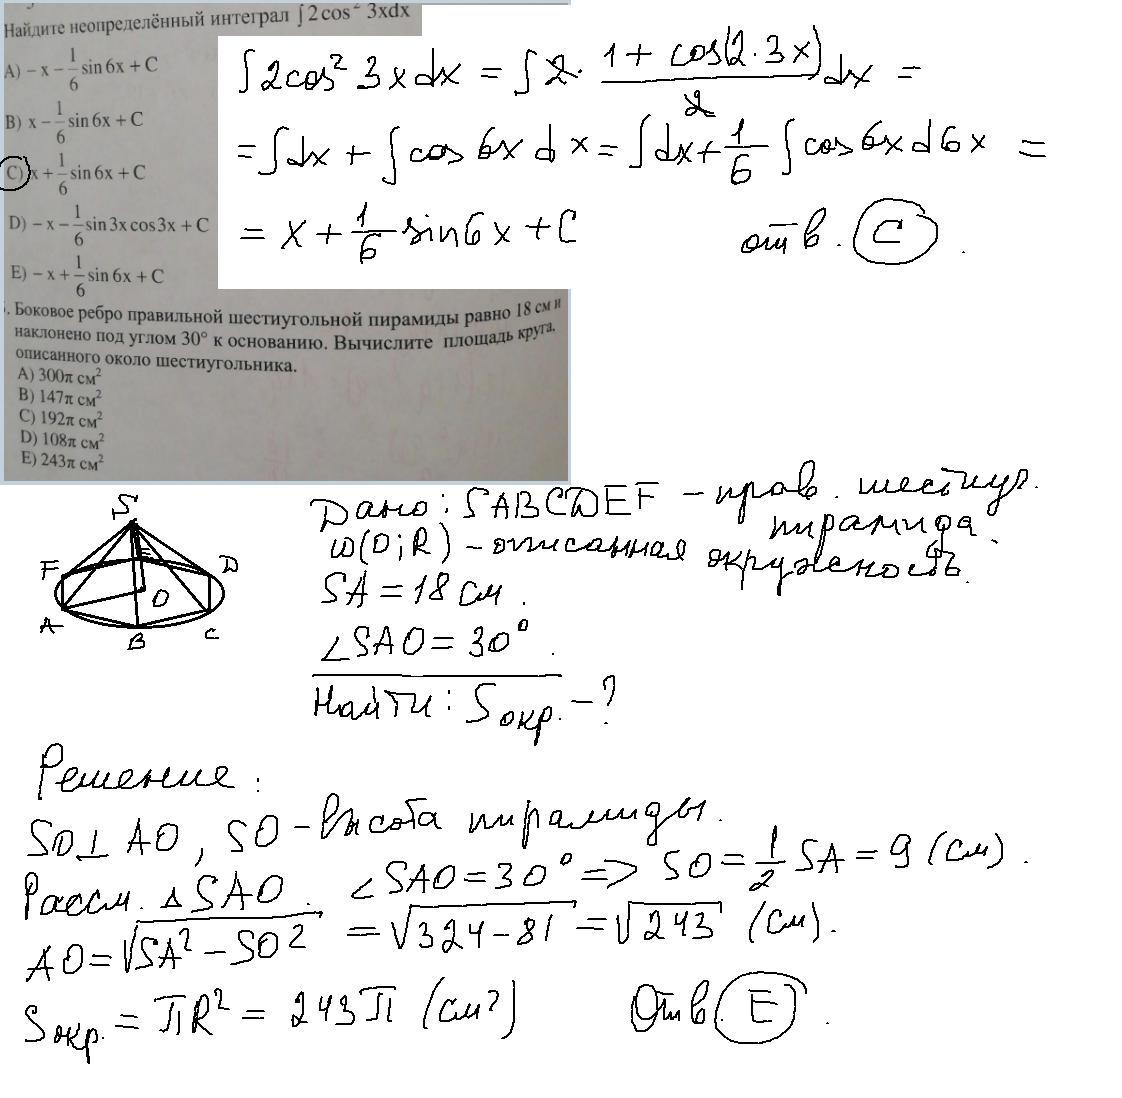 Найдите неопределённый интеграл ∫2cos² 3xdx
A) −x−1/6 sin 6x + C
B) x−1/6 sin 6x + C
C) x+1/6 sin 6x + C
D) −x−1/6 sin 3x cos 3x + C
E) −x+1/6 sin 6x + C
∫2cos² 3x dx = ∫2· (1 + cos(2·3x))/2 dx =
= ∫dx + ∫cos 6x dx = ∫dx + 1/6 ∫cos 6x d6x =
= x + 1/6 sin 6x + C отв. C.
. Боковое ребро правильной шестиугольной пирамиды равно 18 см и
наклонено под углом 30° к основанию. Вычислите площадь круга,
описанного около шестиугольника.
A) 300π см²
B) 147π см²
C) 192π см²
D) 108π см²
E) 243π см²
S
F E D
O
A B C
Дано: SABCDEF – прав. шестиуг.
пирамида.
ω(O;R) – описанная окружность.
SA = 18 см.
∠SAO = 30°.
Найти: Sокр. – ?
Решение:
SO⊥AO, SO – высота пирамиды.
Рассм. △SAO. ∠SAO = 30° => SO = 1/2 SA = 9 (см).
AO = √(SA² − SO²) = √(324 − 81) = √243 (см).
Sокр. = πR² = 243π (см²) Отв. E.